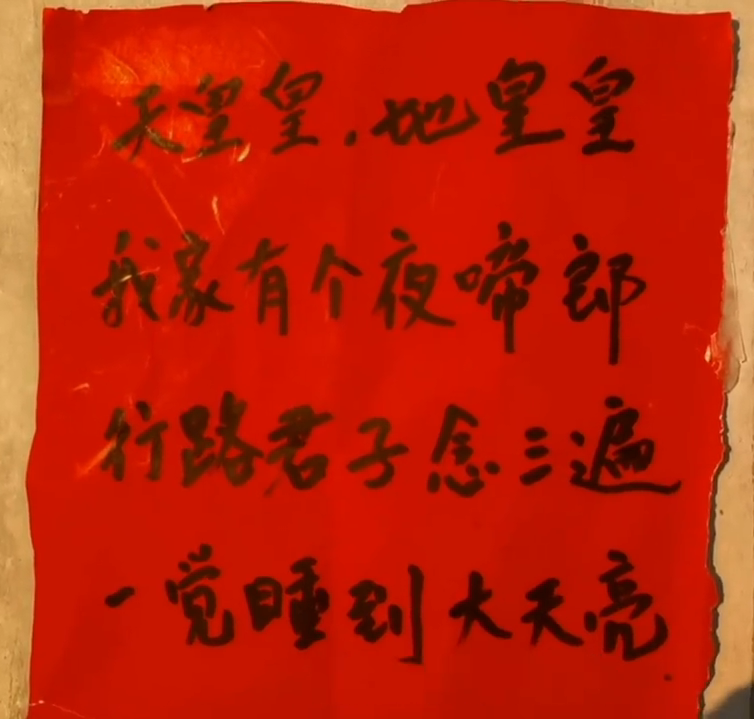 天皇皇,地皇皇
我家有个夜啼郎
行路君子念三遍
一觉睡到大天亮.